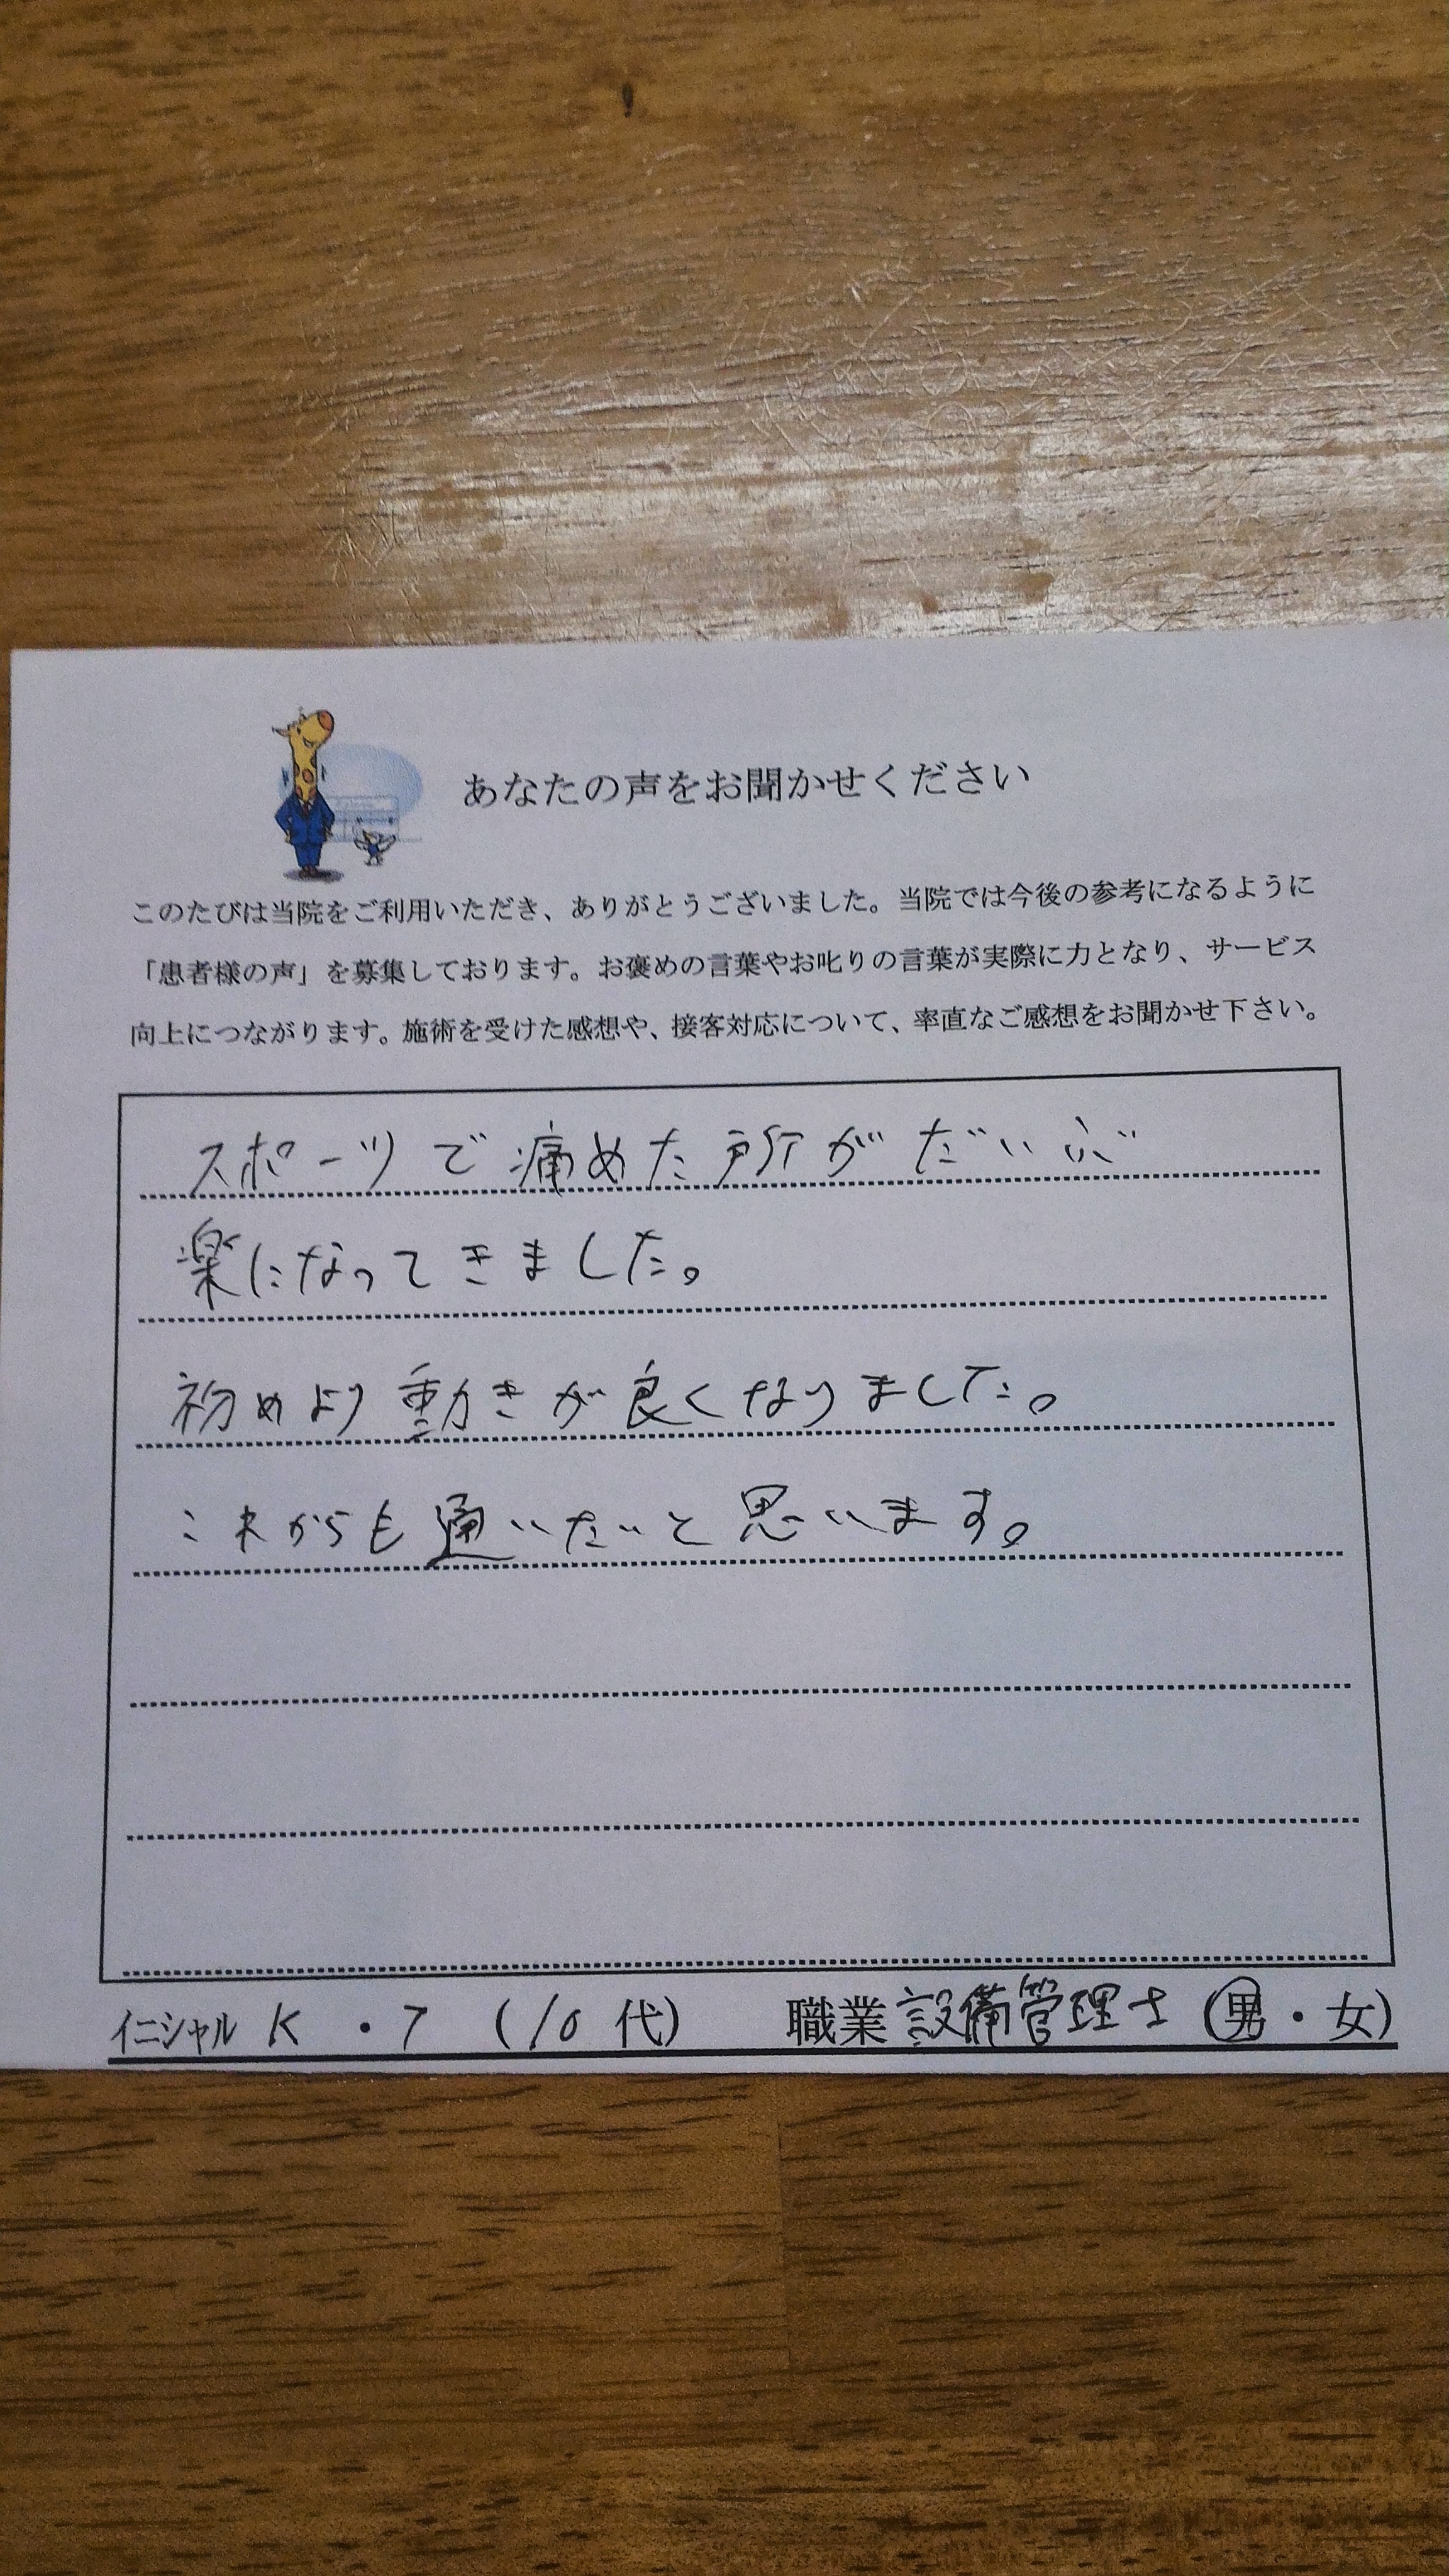 あなたの声をお聞かせください
このたびは当院をご利用いただき、ありがとうございました。当院では今後の参考になるように
「患者様の声」を募集しております。お褒めの言葉やお叱りの言葉が実際に力となり、サービス
向上につながります。施術を受けた感想や、接客対応について、率直なご感想をお聞かせ下さい。
スポーツで痛めた所がだいぶ
楽になってきました。
初めより動きが良くなりました。
これからも通いたいと思います。
イニシャル K ・ T (10 代) 職業 設備管理士 (男・女)